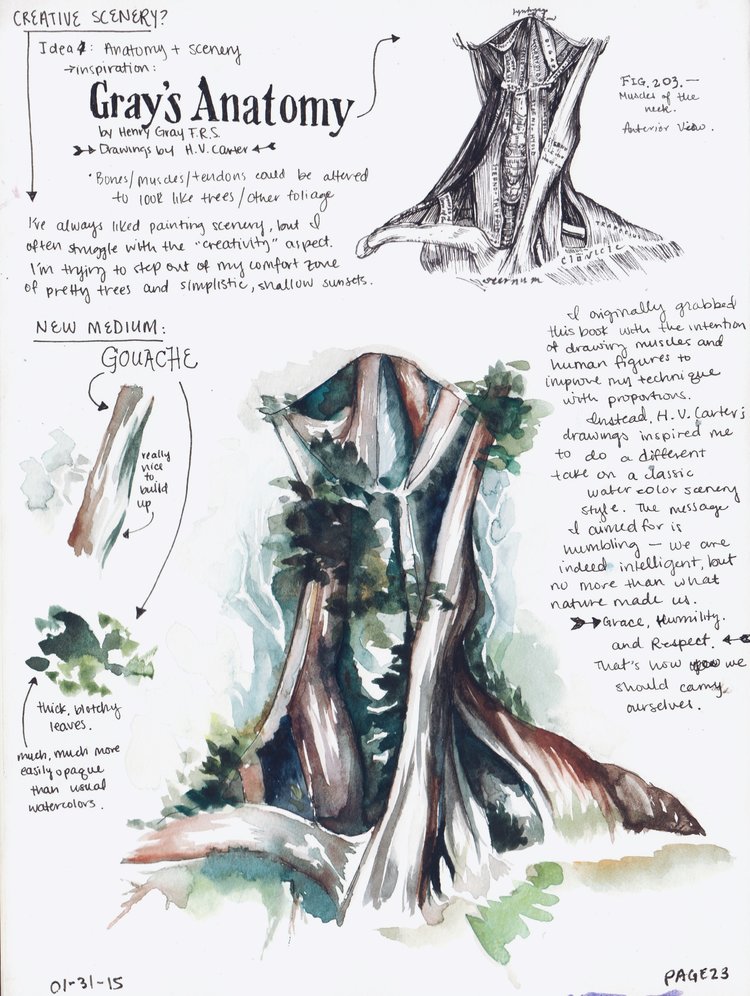 CREATIVE SCENERY?
Idea 1: Anatomy + scenery
→inspiration:
Gray's Anatomy
by Henry Gray F.R.S.
Drawings by H.V. Carter
• Bones/muscles/tendons could be altered
to look like trees/other foliage
I've always liked painting scenery, but I
often struggle with the "creativity" aspect.
I'm trying to step out of my comfort zone
of pretty trees and simplistic, shallow sunsets.
FIG. 203.—
Muscles of the
neck.
Anterior View.
STERNUM
CLAVICLE
TRAPEZIUS
NEW MEDIUM:
GOUACHE
really
nice
to
build
up
thick, blotchy
leaves.
much, much more
easily opaque
than usual
watercolors.
I originally grabbed
this book with the intention
of drawing muscles and
human figures to
improve my technique
with proportions.
Instead, H.V. Carter's
drawings inspired me
to do a different
take on a classic
watercolor scenery
style. The message
I aimed for is
humbling — we are
indeed intelligent, but
no more than what
nature made us.
Grace, Humility,
and Respect.
That's how we
should carry
ourselves.
01-31-15
PAGE23